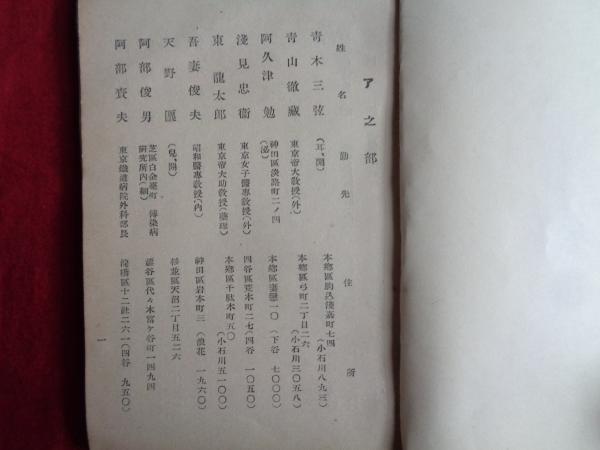 ア之部
姓名 勤先 住所
青木三弦 (耳、鼻) 本鄕區駒込淺嘉町七四 (小石川八九三)
靑山徹藏 東京帝大敎授(外) 本鄕區弓町二丁目二六 (小石川三〇五八)
阿久津勉 神田區淡路町二ノ四 (泌) 本鄕區妻戀一〇 (下谷七〇〇〇)
淺見忠衞 東京女子醫專敎授(外) 四谷區荒木町二七(四谷 一〇五〇)
東龍太郎 東京帝大助敎授(藥理) 本鄕區千駄木町五〇 (小石川五一〇〇)
吾妻俊夫 昭和醫專敎授(內) 神田區岩本町三 (浪花 一九六〇)
天野 (兒、) 杉並區天沼二丁目五二六
阿部俊男 芝區白金臺町 傳染病硏究所內(細) 澁谷區代々木富ケ谷町一四九四
阿部賚夫 東京鐵道病院外科部長 淀橋區十二社二六一(四谷 九五〇)
一